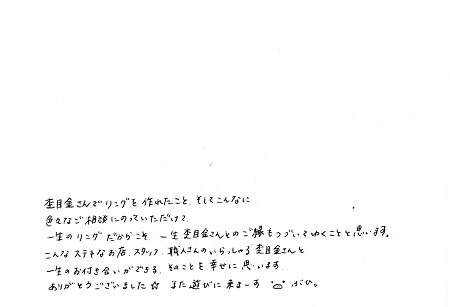 杢目金さんでリングを作れたこと、そしてこんなに
色々なご相談にのっていただけて、
一生のリングだからこそ、一生杢目金さんとのご縁もつづいてゆくことと思います。
こんなステキなお店、スタッフ、職人さんのいらっしゃる杢目金さんと
一生のお付き合いができる、そのことを幸せに思います。
ありがとうございました☆ また遊びに来まーす